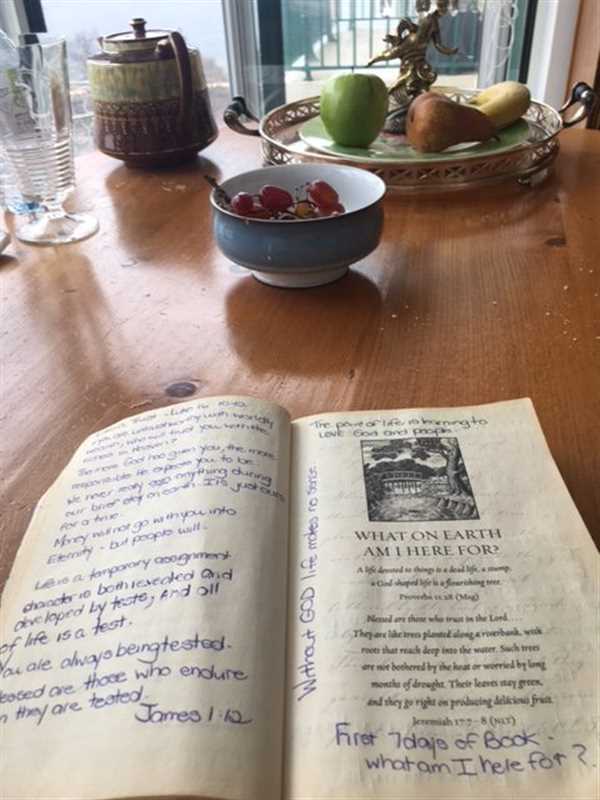 Trust - Luke 16 10-12
if you are untrustworthy with worldly
wealth, who will trust you with the
riches in Heaven?
The more God has given you, the more
responsible He expects you to be.
We never really own anything during
our brief stay on earth. It's just ours
for a time.
Money will not go with you into
Eternity - but people will.
Life is a temporary assignment
character is both revealed and
developed by tests, and all
of life is a test.
You are always being tested.
Blessed are those who endure
when they are tested.
James 1:12
The point of life is learning to
LOVE God and people.
Without GOD life makes no sense.
WHAT ON EARTH
AM I HERE FOR?
A life devoted to things is a dead life, a stump;
a God-shaped life is a flourishing tree.
Proverbs 11:28 (Msg)
Blessed are those who trust in the Lord....
They are like trees planted along a riverbank, with
roots that reach deep into the water. Such trees
are not bothered by the heat or worried by long
months of drought. Their leaves stay green,
and they go right on producing delicious fruit.
Jeremiah 17:7–8 (NLT)
First 7 days of Book -
what am I here for?